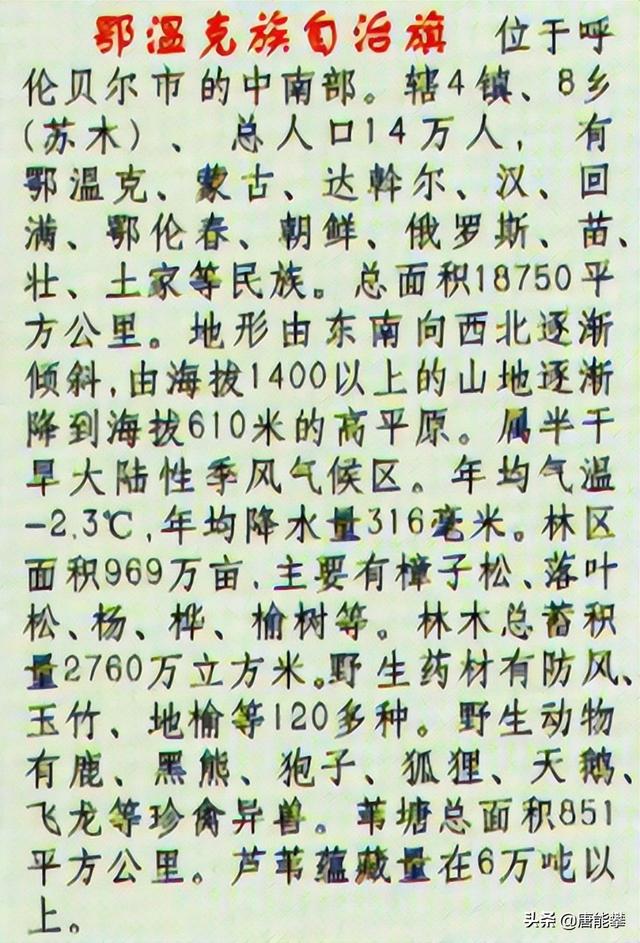 鄂温克族自治旗 位于呼
伦贝尔市的中南部。辖4镇、8乡
(苏木)、总人口14万人，有
鄂温克、蒙古、达斡尔、汉、回
满、鄂伦春、朝鲜、俄罗斯、苗、
壮、土家等民族。总面积18750平
方公里。地形由东南向西北逐渐
倾斜,由海拔1400以上的山地逐渐
降到海拔610米的高平原。属半干
旱大陆性季风气候区。年均气温
-2.3℃,年均降水量316毫米。林区
面积969万亩,主要有樟子松、落叶
松、杨、桦、榆树等。林木总蓄积
量2760万立方米。野生药材有防风、
玉竹、地榆等120多种。野生动物
有鹿、黑熊、狍子、狐狸、天鹅、
飞龙等珍禽异兽。苇塘总面积851
平方公里。芦苇蕴藏量在6万吨以
上。
头条 @唐能攀